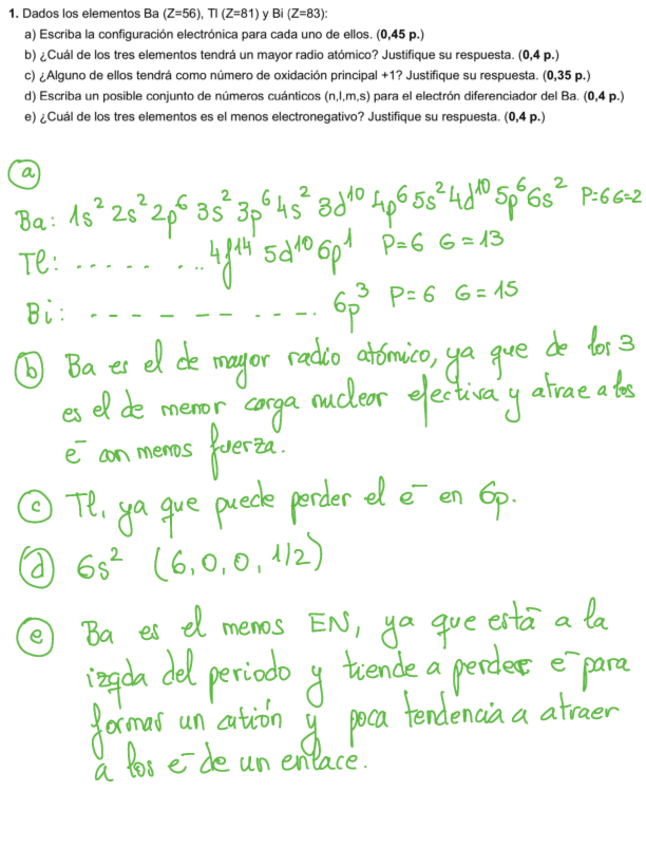 1. Dados los elementos Ba (Z=56), Tl (Z=81) y Bi (Z=83):
a) Escriba la configuración electrónica para cada uno de ellos. (0,45 p.)
b) ¿Cuál de los tres elementos tendrá un mayor radio atómico? Justifique su respuesta. (0,4 p.)
c) ¿Alguno de ellos tendrá como número de oxidación principal +1? Justifique su respuesta. (0,35 p.)
d) Escriba un posible conjunto de números cuánticos (n,l,m,s) para el electrón diferenciador del Ba. (0,4 p.)
e) ¿Cuál de los tres elementos es el menos electronegativo? Justifique su respuesta. (0,4 p.)
a
Ba: 1s² 2s² 2p⁶ 3s² 3p⁶ 4s² 3d¹⁰ 4p⁶ 5s² 4d¹⁰ 5p⁶ 6s² P=6 G=2
Tl: ........ 4f¹⁴ 5d¹⁰ 6p¹ P=6 G=13
Bi: ---------- 6p³ P=6 G=15
b Ba es el de mayor radio atómico, ya que de los 3
es el de menor carga nuclear efectiva y atrae a los
e⁻ con menos fuerza.
c Tl, ya que puede perder el e⁻ en 6p.
d 6s² (6,0,0,1/2)
e Ba es el menos EN, ya que está a la
izqda del periodo y tiende a perder e⁻ para
formar un catión y poca tendencia a atraer
a los e⁻ de un enlace.